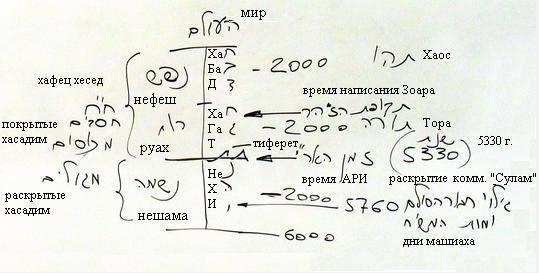 мир
העולם
Ха חב
Ба
Д ד
хафец хесед
נפש
нефеш
- 2000
תהו
Хаос
время написания Зоара
Ха ח
תקופת הזהר
покрытые
хасадим
ח"ח
חסדים
מכוסים
רוח
руах
Га ג
- 2000
תורה
Тора
Т
ת"ת
тиферет
זמן האר"י
время АРИ
שנת
5330
5330 г.
מגולים
раскрытые
хасадим
נשמה
нешама
Не נ
Х ה
И י
- 2000
5760
раскрытие комм. "Сулам"
גילוי
הסולם
ימות המשיח
дни машиаха
6000